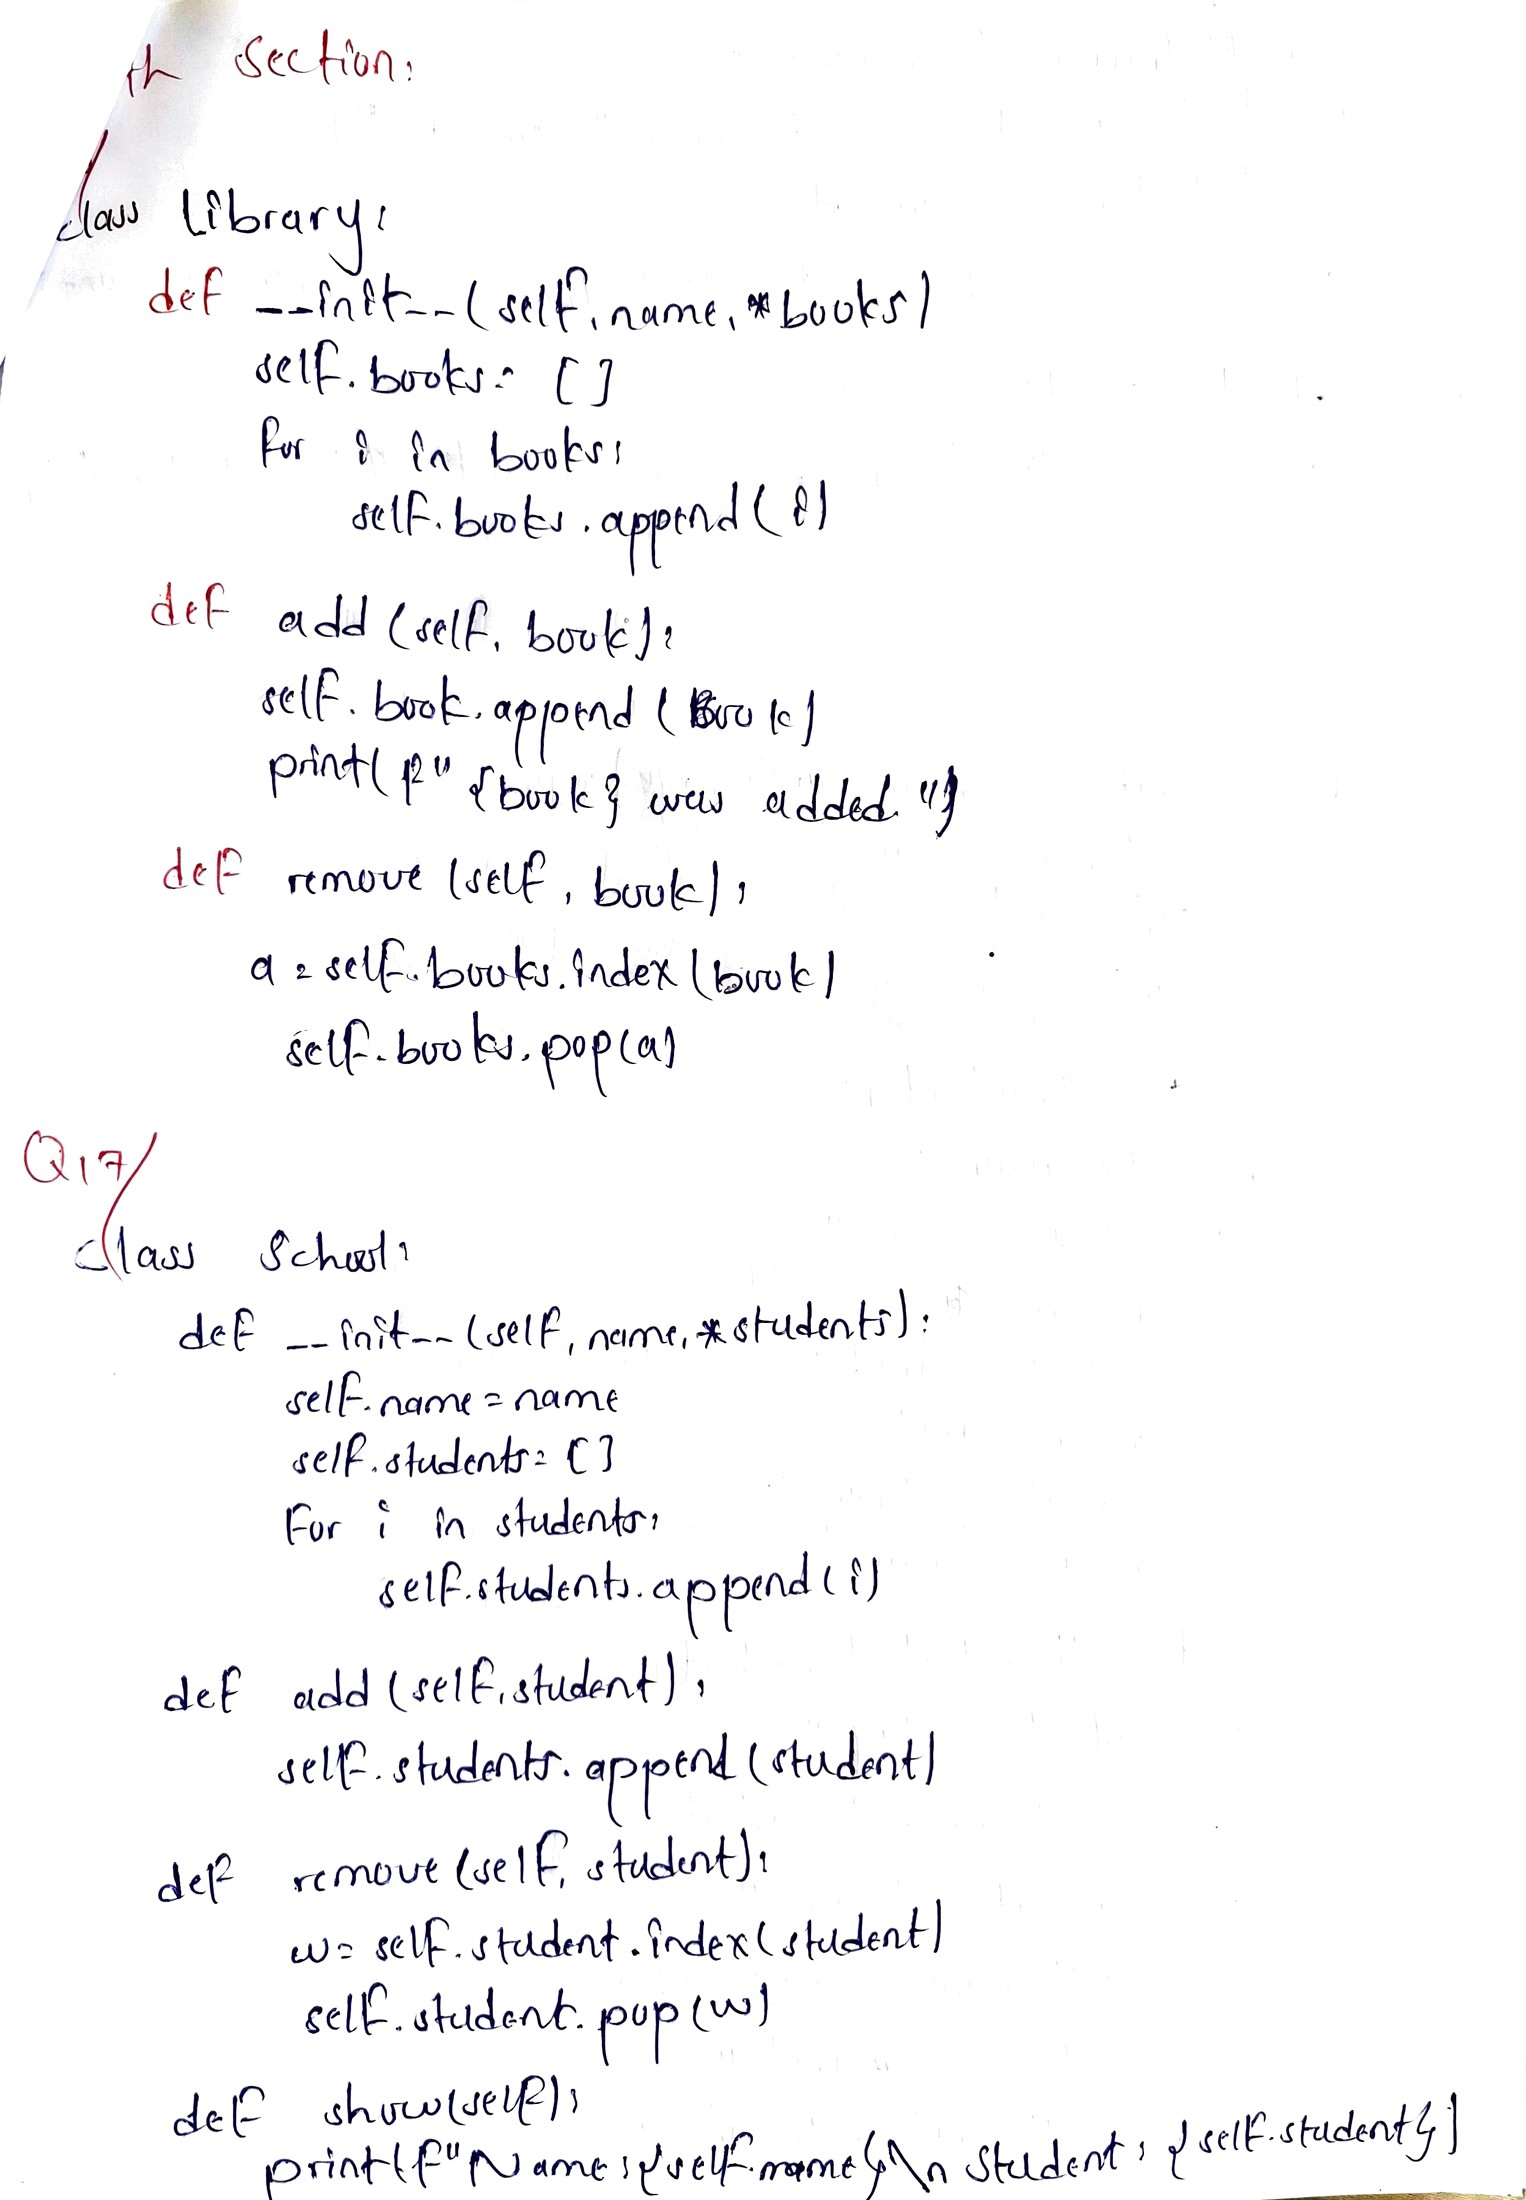 th section:
class Library:
def __init__(self, name, *books)
self.books = []
for i in books:
self.books.append(i)
def add(self, book):
self.book.append(book)
print(f"{book} was added.")
def remove(self, book):
a = self.books.index(book)
self.books.pop(a)
Q17/
class School:
def __init__(self, name, *students):
self.name = name
self.students = []
For i in students:
self.students.append(i)
def add(self, student):
self.students.append(student)
def remove(self, student):
w = self.student.index(student)
self.student.pop(w)
def show(self):
print(f"Name:{self.name}\n Student: {self.student})